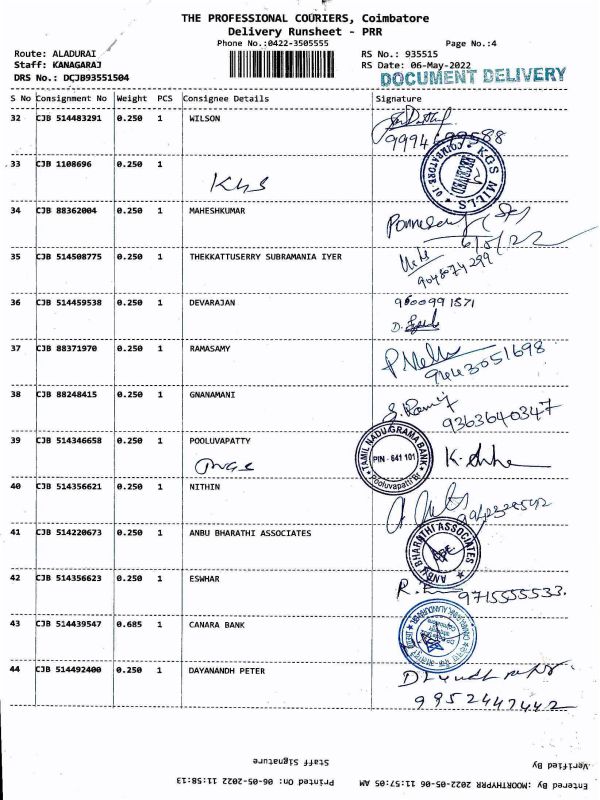 THE PROFESSIONAL COURIERS, Coimbatore
Delivery Runsheet - PRR
Phone No.:0422-3505555
Page No.:4
Route: ALADURAI
RS No.: 935515
Staff: KANAGARAJ
RS Date: 06-May-2022
DRS No.: DCJB93551504
DOCUMENT DELIVERY
S No Consignment No Weight PCS Consignee Details Signature
32 CJB 514483291 0.250 1 WILSON
33 CJB 1108696 0.250 1
KGS MILLS
RECEIVED
COIMBATORE
34 CJB 88362004 0.250 1 MAHESHKUMAR
6/5/22
35 CJB 514508775 0.250 1 THEKKATTUSERRY SUBRAMANIA IYER
9048074299
36 CJB 514459538 0.250 1 DEVARAJAN
9600991871
37 CJB 88371970 0.250 1 RAMASAMY
9443051698
38 CJB 88248415 0.250 1 GNANAMANI
9363640347
39 CJB 514346658 0.250 1 POOLUVAPATTY
TAMIL NADU GRAMA BANK
PIN - 641 101
Pooluvapatti Br
40 CJB 514356621 0.250 1 NITHIN
41 CJB 514220673 0.250 1 ANBU BHARATHI ASSOCIATES
ANBU BHARATHI ASSOCIATES
42 CJB 514356623 0.250 1 ESWHAR
9715555533.
43 CJB 514439547 0.685 1 CANARA BANK
44 CJB 514492400 0.250 1 DAYANANDH PETER
9952447442
Staff Signature
Verified By
Printed On: 06-05-2022 11:58:13
Entered By :MOORTHYPRR 06-05-2022 11:57:05 AM